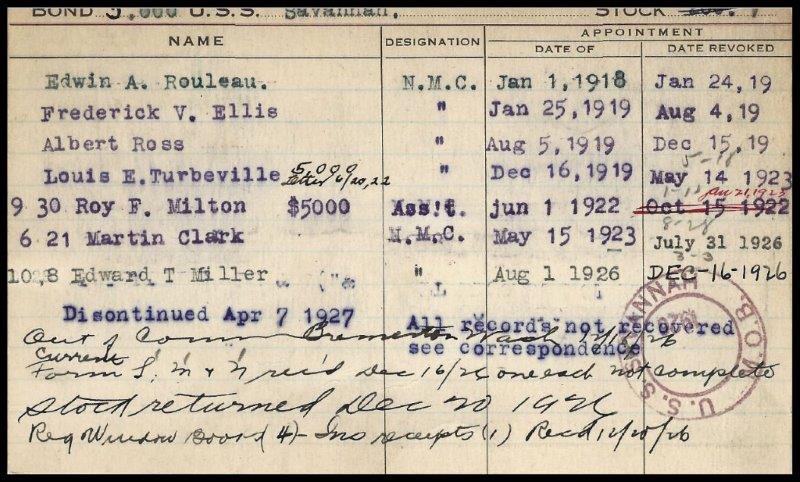 BOND 5,000 U.S.S. Savannah. STOCK 7
NAME DESIGNATION APPOINTMENT
DATE OF DATE REVOKED
Edwin A. Rouleau. N.M.C. Jan 1,1918 Jan 24,19
Frederick V. Ellis " Jan 25,1919 Aug 4,19
Albert Ross " Aug 5,1919 Dec 15,19
5-18
Louis E.Turbeville 5000 Letter 6/20,22 " Dec 16,1919 May 14 1923
1-11 Jan 21,1923
9 30 Roy F. Milton $5000 Ass't. jun 1 1922 Oct 15 1922
8-28
6 21 Martin Clark N.M.C. May 15 1923 July 31 1926
3-3
10 28 Edward T Miller " Aug 1 1926 DEC-16-1926
Disontinued Apr 7 1927 All records not recovered
see correspondence
Out of Comm Bremerton Wash 12/16/26
Current
Form 1, M & N rec'd Dec 16/26 one each not complete
Stock returned Dec 20 1926
Reg Window Board (4) - Ins receipts (1) Recd 12/20/26
U.S.S. SAVANNAH